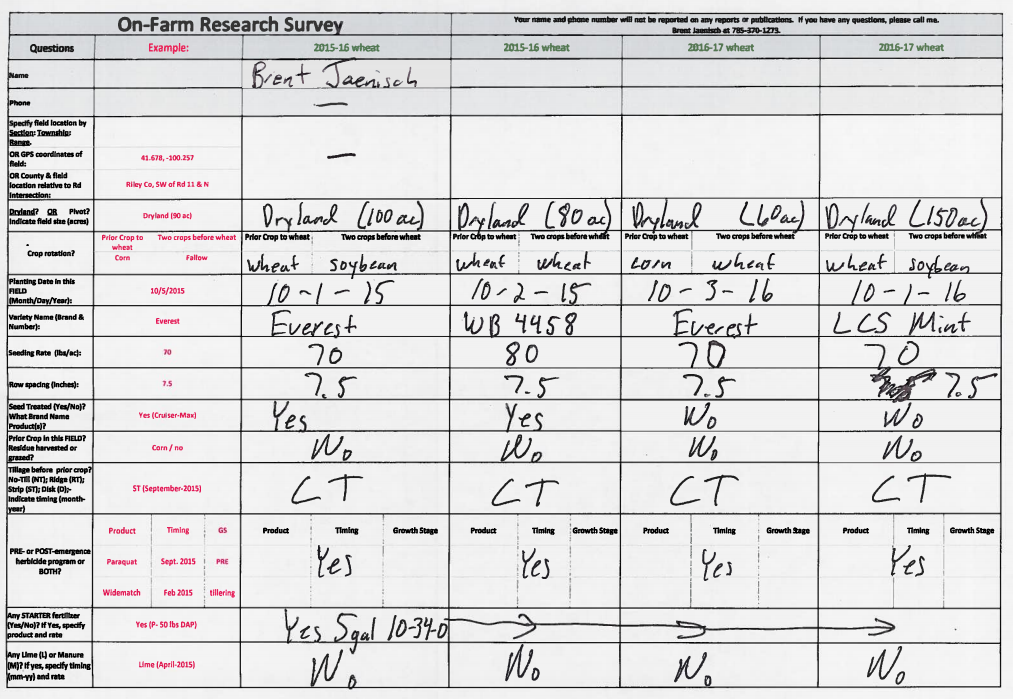 On-Farm Research Survey
Your name and phone number will not be reported on any reports or publications. If you have any questions, please call me.
Brent Jaenisch at 785-370-1273.
Questions Example: 2015-16 wheat 2015-16 wheat 2016-17 wheat 2016-17 wheat
Name Brent Jaenisch
Phone —
Specify field location by
Section: Township:
Range.
OR GPS coordinates of
field: 41.678, -100.257 —
OR County & field
location relative to Rd
Intersection: Riley Co, SW of Rd 11 & N
Dryland? OR Pivot?
Indicate field size (acres) Dryland (90 ac) Dryland (100 ac) Dryland (80 ac) Dryland (60 ac) Dryland (150 ac)
Crop rotation?
Prior Crop to wheat Two crops before wheat Prior Crop to wheat Two crops before wheat Prior Crop to wheat Two crops before wheat Prior Crop to wheat Two crops before wheat Prior Crop to wheat Two crops before wheat
Corn Fallow wheat soybean wheat wheat corn wheat wheat soybean
Planting Date in this
FIELD
(Month/Day/Year): 10/5/2015 10-1-15 10-2-15 10-3-16 10-1-16
Variety Name (Brand &
Number): Everest Everest WB 4458 Everest LCS Mint
Seeding Rate (lbs/ac): 70 70 80 70 70
Row spacing (Inches): 7.5 7.5 7.5 7.5 7.5
Seed Treated (Yes/No)?
What Brand Name
Product(s)? Yes (Cruiser-Max) Yes Yes No No
Prior Crop in this FIELD?
Residue harvested or
grazed? Corn / no No No No No
Tillage before prior crop?
No-Till (NT); Ridge (RT);
Strip (ST); Disk (D);-
Indicate timing (month-
year) ST (September-2015) CT CT CT CT
Product Timing GS Product Timing Growth Stage Product Timing Growth Stage Product Timing Growth Stage Product Timing Growth Stage
PRE- or POST-emergence
herbicide program or
BOTH?
Paraquat Sept. 2015 PRE Yes Yes Yes Yes
Widematch Feb 2015 tillering
Any STARTER fertilizer
(Yes/No)? If Yes, specify
product and rate Yes (P- 50 lbs DAP) Yes 5gal 10-34-0
Any Lime (L) or Manure
(M)? If yes, specify timing
(mm-yy) and rate Lime (April-2015) No No No No